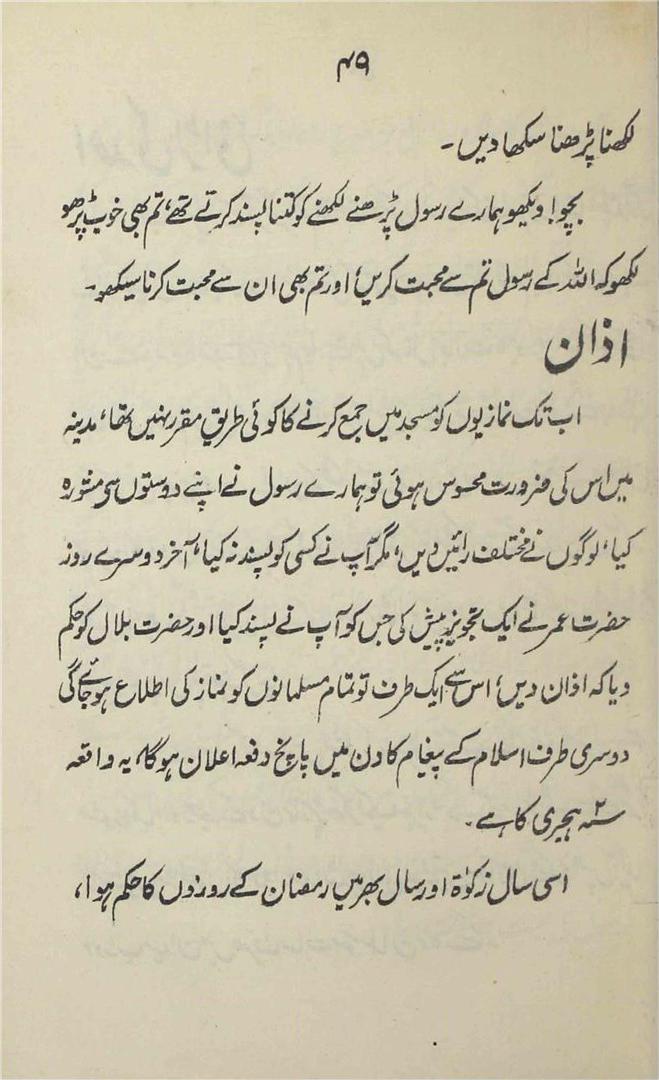 ۴۹
لکھنا پڑھنا سکھا دیں۔
بچو! دیکھو ہمارے رسول پڑھنے لکھنے کو کتنا پسند کرتے تھے، تم بھی خوب پڑھو
لکھو کہ اللہ کے رسول تم سے محبت کریں، اور تم بھی ان سے محبت کرنا سیکھو۔
اذان
اب تک نمازیوں کو مسجد میں جمع کرنے کا کوئی طریق مقرر نہیں تھا، مدینہ
میں اس کی ضرورت محسوس ہوئی تو ہمارے رسول نے اپنے دوستوں سی مشورہ
کیا، لوگوں نے مختلف رائیں دیں، مگر آپ نے کسی کو پسند نہ کیا، آخر دوسرے روز
حضرت عمر نے ایک تجویز پیش کی جس کو آپ نے پسند کیا اور حضرت بلال کو حکم
دیا کہ اذان دیں، اس سے ایک طرف تو تمام مسلمانوں کو نماز کی اطلاع ہو جائے گی
دوسری طرف اسلام کے پیغام کا دن میں پانچ دفعہ اعلان ہو گا، یہ واقعہ
۲؁ ہجری کا ہے۔
اسی سال زکوٰۃ اور سال بھر میں رمضان کے روزوں کا حکم ہوا،